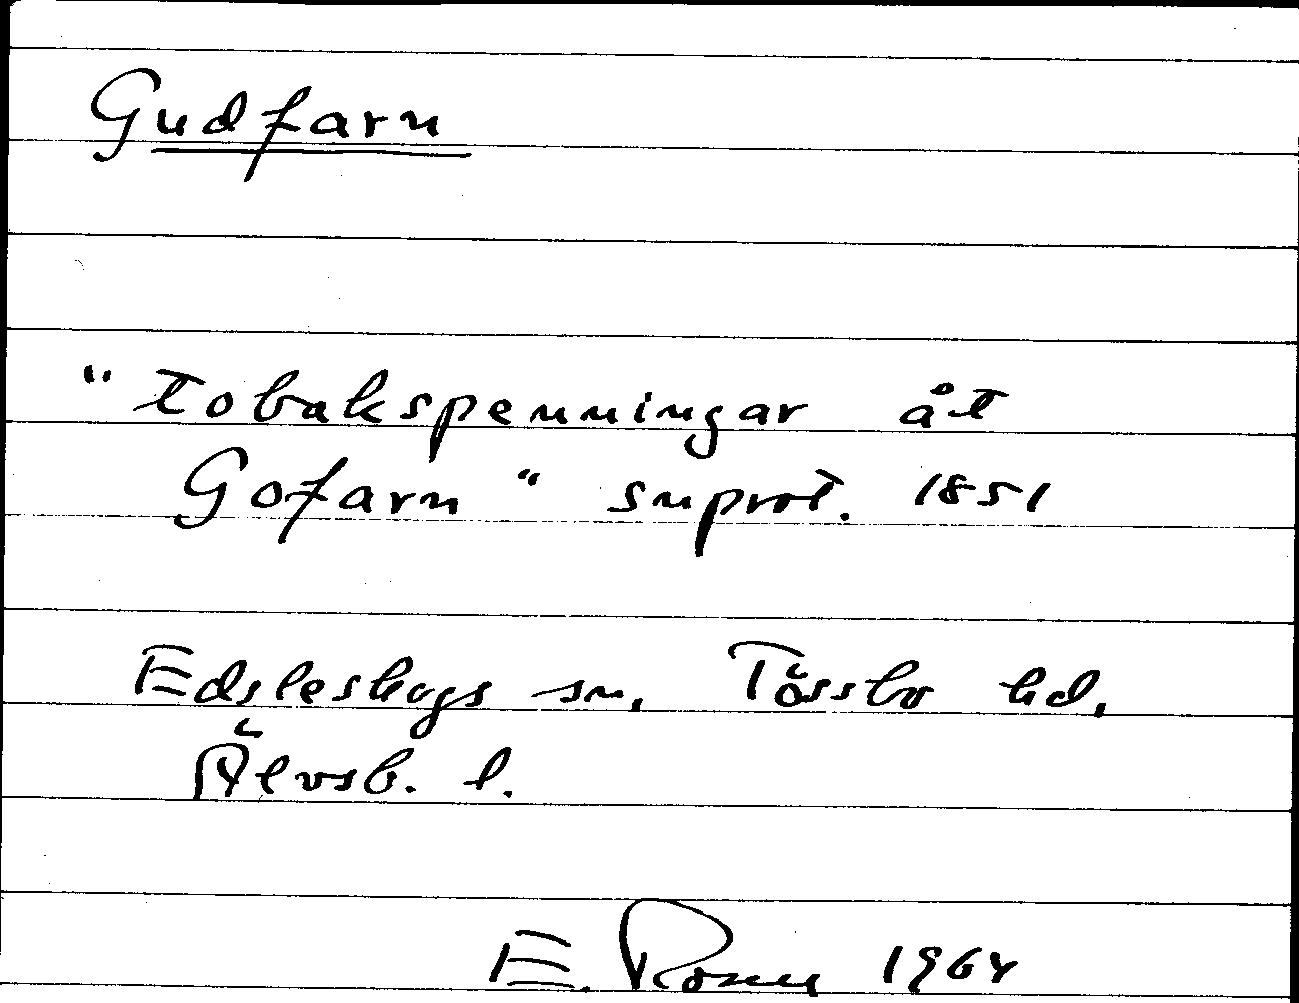 Gudfarn
"tobakspenningar åt
Gofarn" snprot. 1851
Edsleskogs sn, Tössbo hd,
Älvsb. l.
E. Rosen 1964